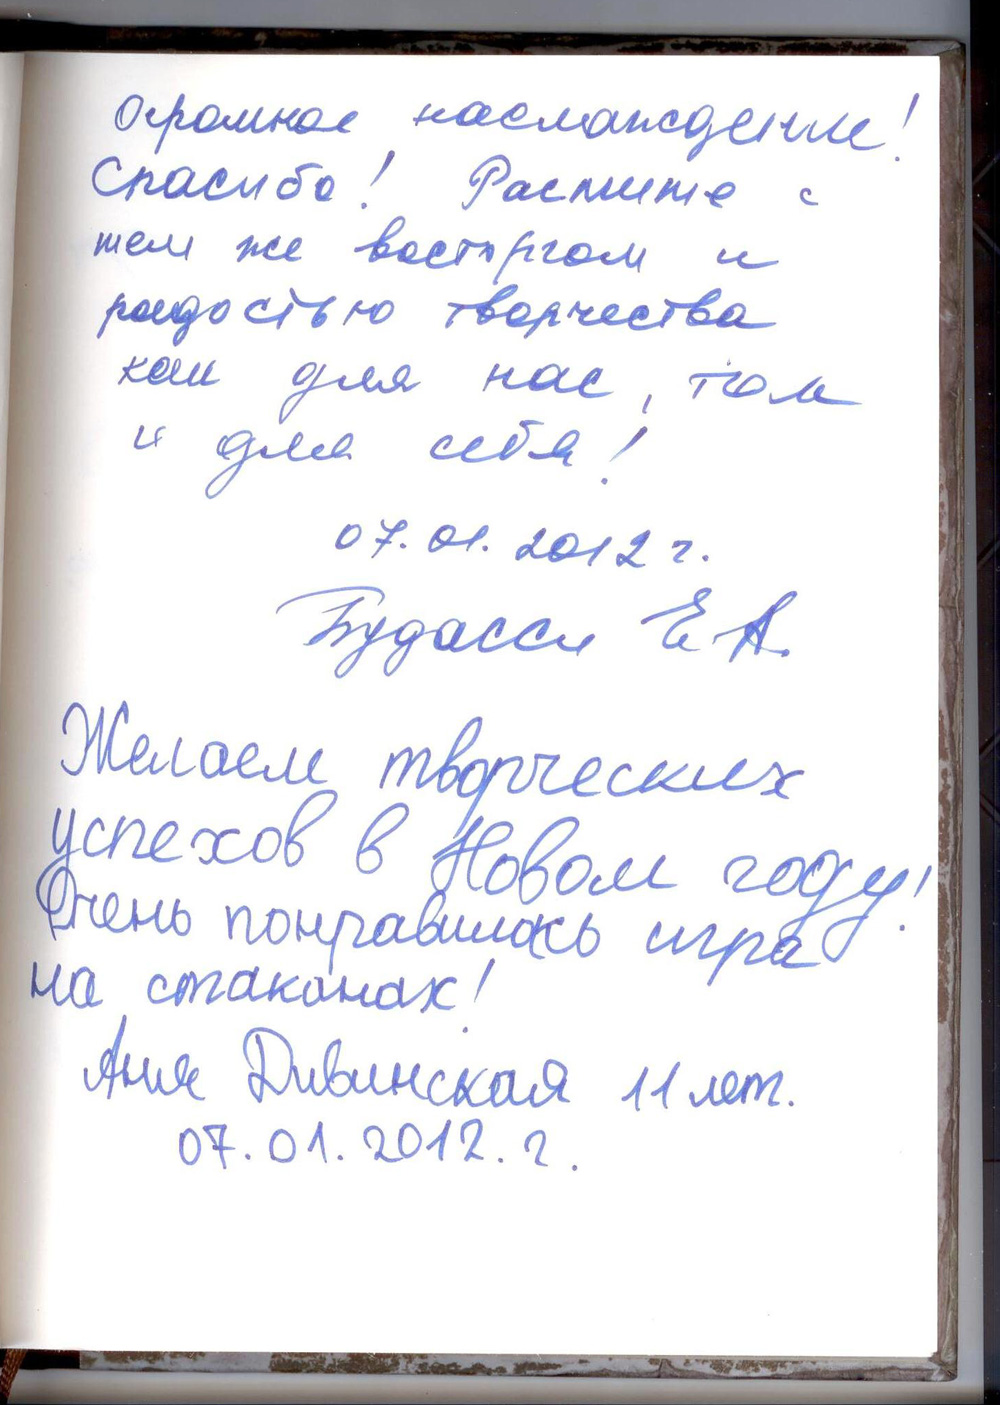 Огромное наслаждение!
Спасибо! Растите с
тем же восторгом и
радостью творчества
как для нас, так
и для себя!
07.01.2012 г.
Будасси Е.А.
Желаем творческих
успехов в Новом году!
Очень понравилась игра
на стаканах!
Аня Дивинская 11 лет.
07.01.2012.г.